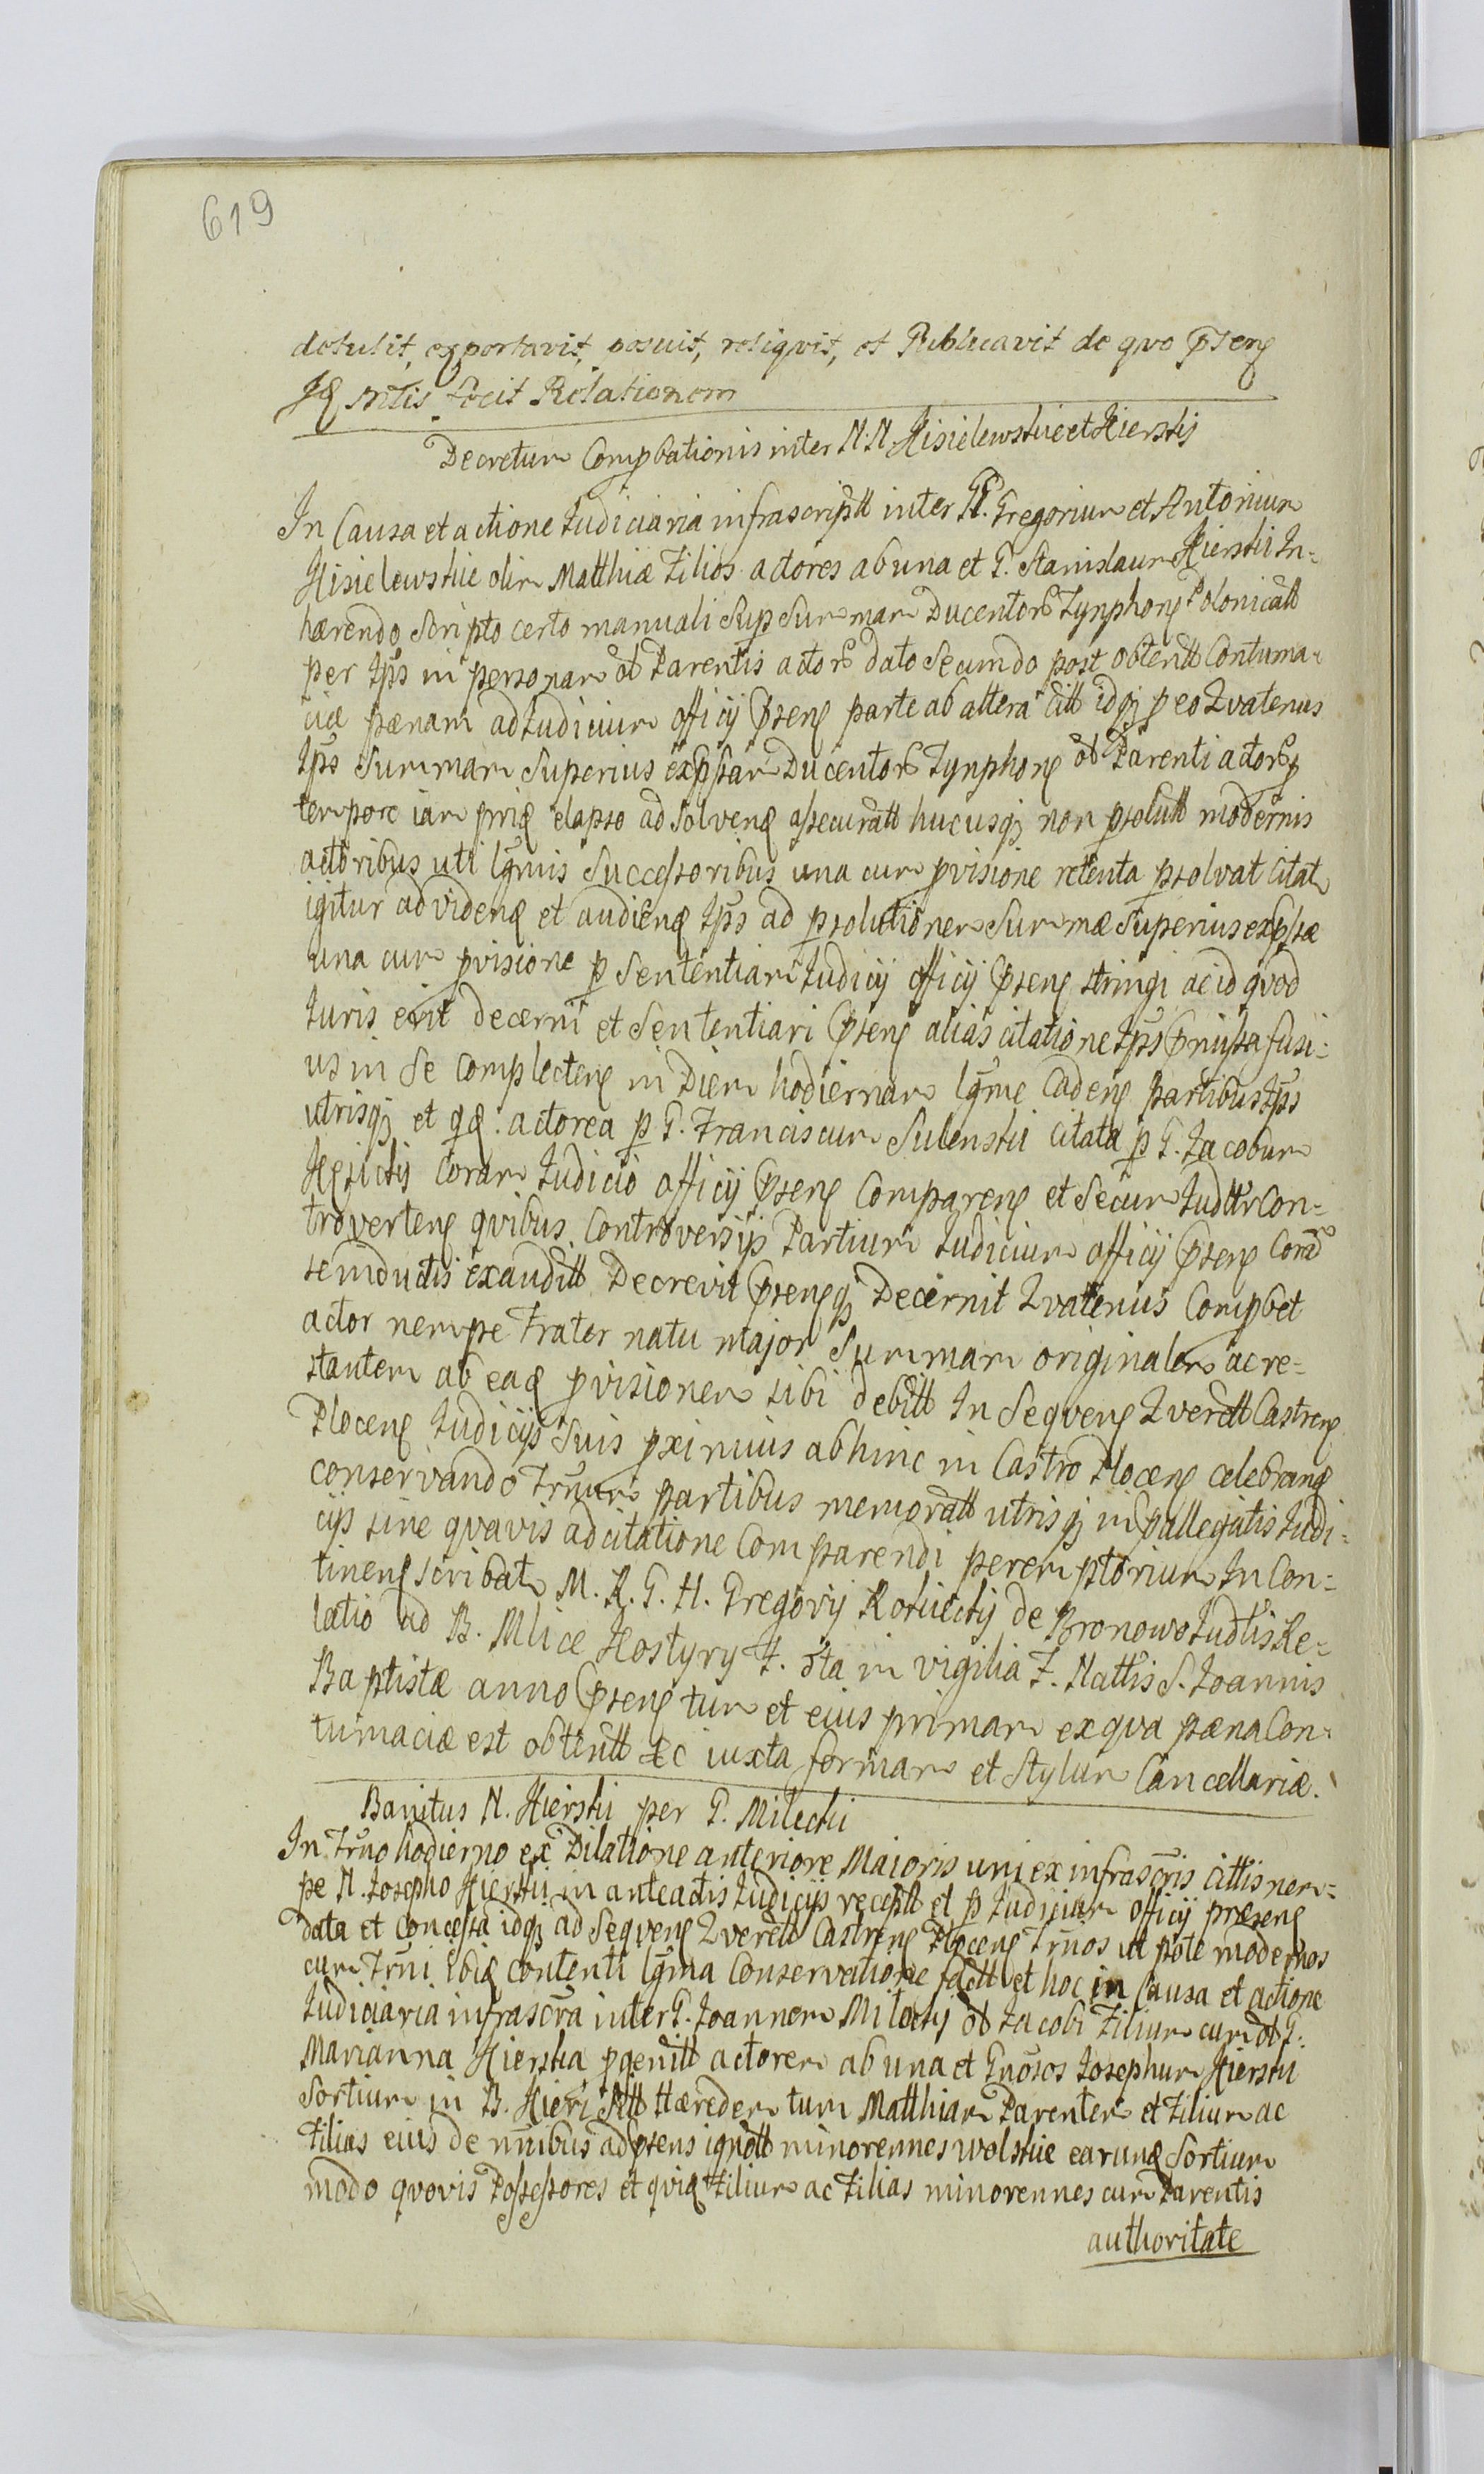 619
detulit, exportavit, posuit, reliqvit, et Publicavit de qvo pñseng
Jḡ Mtis fecit Relationem
Decretum Comprobationis inter N.N. Kisielewskie et Kierskis
In Causa et actione Judiciaria infrascriptt inter G̃G. Gregorium et Antonium
Kisielewskie olim Matthiæ Filios actores ab una et G. Stanislaum Kierski In=
hærendo Scripto certo manuali Sup Summam Ducentor̃ Tynphong Polonicatt
per Ips̃ in personam ol̃ Parentis actor̃ dato Secundo post obtentt Contuma=
ciæ pænam ad Judicium officij p̃seng parte ab altera citt idq; p eo Qvatenus
Ips̃ Summam Superius exp̃ssam Ducentor̃ Tynphong ol̃ Parenti actor̃
tempore iam priq elapso ad Solvenq assecuratt hucusq; non psolutt modernis
actoribus uti lg̃mis Successoribus una cum pvisione retenta psolvat Citat
igitur ad videnq et audienq Ips̃ ad psolutionem Summæ Superius exp̃ssæ
una cum pvisione p Sententiam Judicij officij p̃seng stringi ac id qvod
Juris erit decerni et Sententiari p̃seng alias citatione Ips̃ p̃missa fusi=
us in Se Complecteng in Diem hodiernam lg̃me Cadeng partibus Ips̃
utrisq; et qq: actorea p G. Franciscum Sulenski citata p G. Jacobum
Coram Judicio officij p̃seng Compareng et Secum Juddtr Con=
troverteng qvibus Controversijs Partium Judicium officij p̃seng Corã
se inductis exauditt Decrevit p̃sengq; Decernit Qvatenus Compbet
actor nempe Frater natu major Summam originalem ac re=
stantem ab eaq pvisionem sibi debitt In Seqveng Qverett Castreng
Ploceng Judicijs Suis pximius abhinc in Castro Ploceng celebranq
conservando Trnum partibus memoratt utrisq; in p̃allegatis Judi=
cijs sine qvavis adcitatione Comparendi peremptorium In Con=
tineng scribat M. R. G. H. Gregorij Rokicckij de Bronowo Judtis Re=
latio ad B. Mlice Kostyry F. 5ta in vigilia F. Nattis S. Joannis
Baptistæ anno p̃seng tum et eius primam ex qva pæna Con=
tumaciæ est obtentt &c iuxta formam et Stylum Cancellariæ.
Banitus N. Kierski per G. Milecki
In Trno hodierno ex Dilatione anteriore Maioris uni ex infrascris cittis nem=
pe N. Josepho Kierski in anteactis Judicijs receptt et p Judicium officij præseng
data et Concessa idq; ad Seqveng Qverett Castreng Ploceng Trnos ut pote modernos
cum Trni ibiq contenti lg̃ma Conservatione factt et hoc in Causa et actione
Judiciaria infrascra inter G. Joannem Milecky ol̃ Jacobi Filium cum ol̃ G.
Marianna Kierska pgenitt actorem ab una et Gnosos Josephum Kierski
Sortium in B. Kierz Sitt Hæredem tum Matthiam Parentem et Filium ac
Filias eius de nnibus ad p̃sens ignott minorennes Wolskie earunq Sortium
modo qvovis Possessores et qviq Filium ac Filias minorennes cum Parentis
authoritate